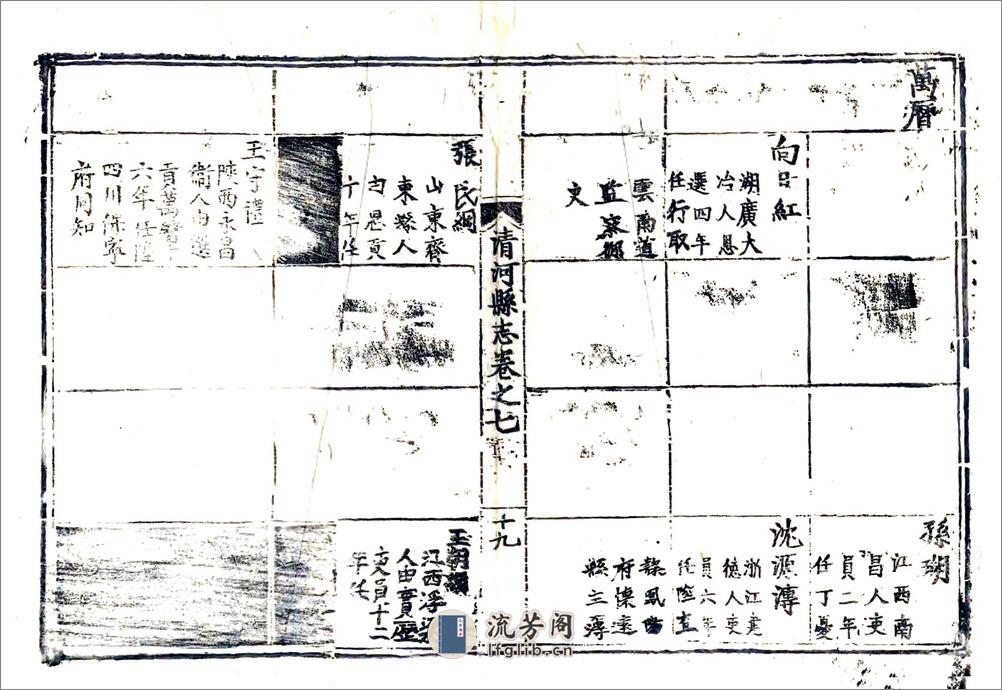 萬曆
向日紅
湖廣大
冶人恩
選四年
任行取
雲南道
監察御
史
孫瑚
江西南
昌人吏
員二年
任丁憂
沈源溥
浙江建
德人吏
員六年
任陞直
隸鳳陽
府懷遠
縣主簿
清河縣志卷之七
十九
張民綱
山東齊
東縣人
由恩貢
十年任
王守禮
陝西永昌
衛人由選
貢萬曆十
六年任陞
四川保寧
府同知
王朝
江西浮梁
人由
員十二
年任
流芳阁
lfglib.cn